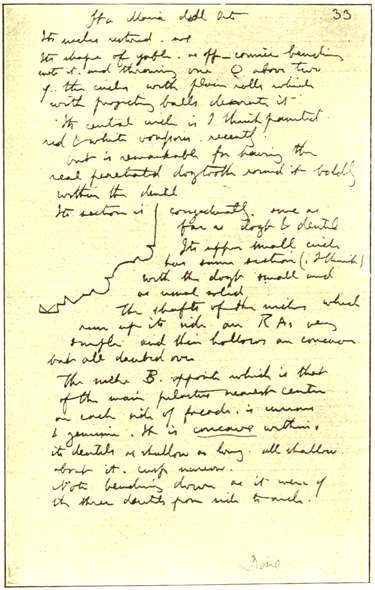 Sta Maria dell Orto 33
Its arches restored. and
Its shape of gable. as off cornice bending
into it. and throwing one O above two
of the circles with plain rolls which
with projecting balls decorate it
Its central arch is I think painted
red & white voussoirs. recently!
but is remarkable for having the
real penetrated dogtooth round it boldly
within the dentil
Its section is consequently. same as
far as dogt to dentil
Its upper small circle
has same section (I think)
with the dogt small and
as usual solid
The shafts of the niches which
run up its side are RAs very
simple and their hollows are concave
but all daubed over
The niche B. opposite which is that
of the main pilasters nearest center
on each side of facade. is curious
& genuine. It is concave within.
its dentils as shallow as long. all shallow
about it. cusp narrow.
Note bending down as it were of
its three dentils from side to arch.
Done